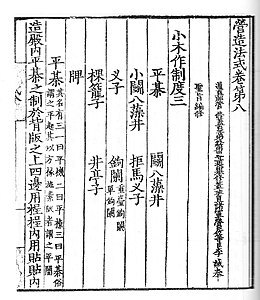 營造法式卷第八
通直郎管修蓋皇弟外第專一提舉修蓋班直諸軍營房等臣李誡奉
聖旨編修
小木作制度三
平棊 鬭八藻井
小鬭八藻井 拒馬叉子
叉子 鉤闌重臺鉤闌單鉤闌
棵籠子 井亭子
牌
平棊其名有三一曰平機二曰平橑三曰平棊俗謂之平起其以方椽施素版者謂之平闇
造殿內平棊之制於背版之上四邊用桯桯內用貼貼內